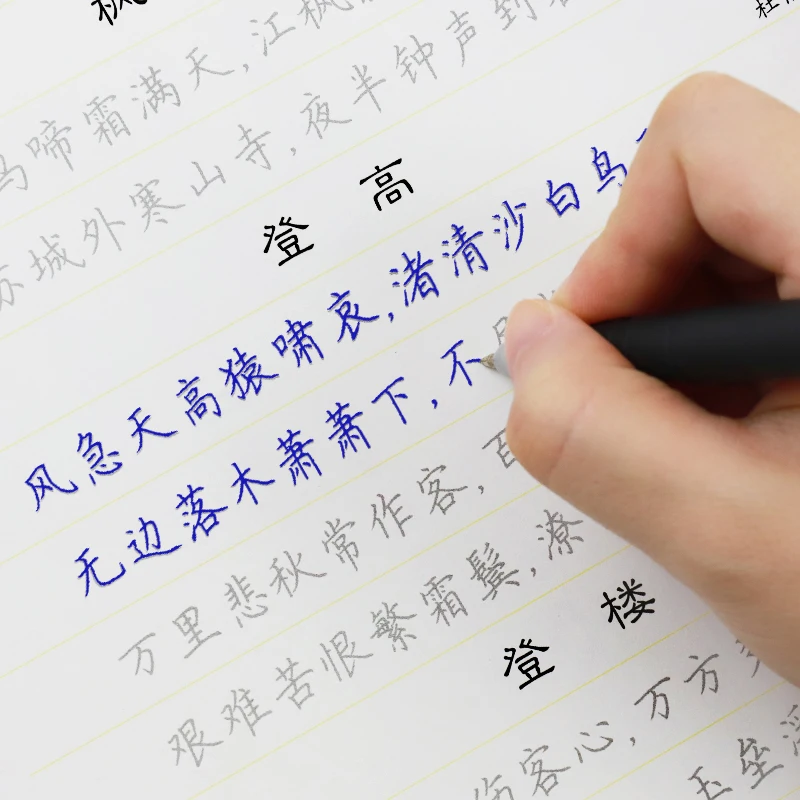 枫
杜
啼霜满天,江枫
城外寒山寺,夜半钟声到
登 高
风急天高猿啸哀,渚清沙白鸟
无边落木萧萧下,不
万里悲秋常作客,百
艰难苦恨繁霜鬓,潦
登 楼
伤客心,万方多
玉垒浮